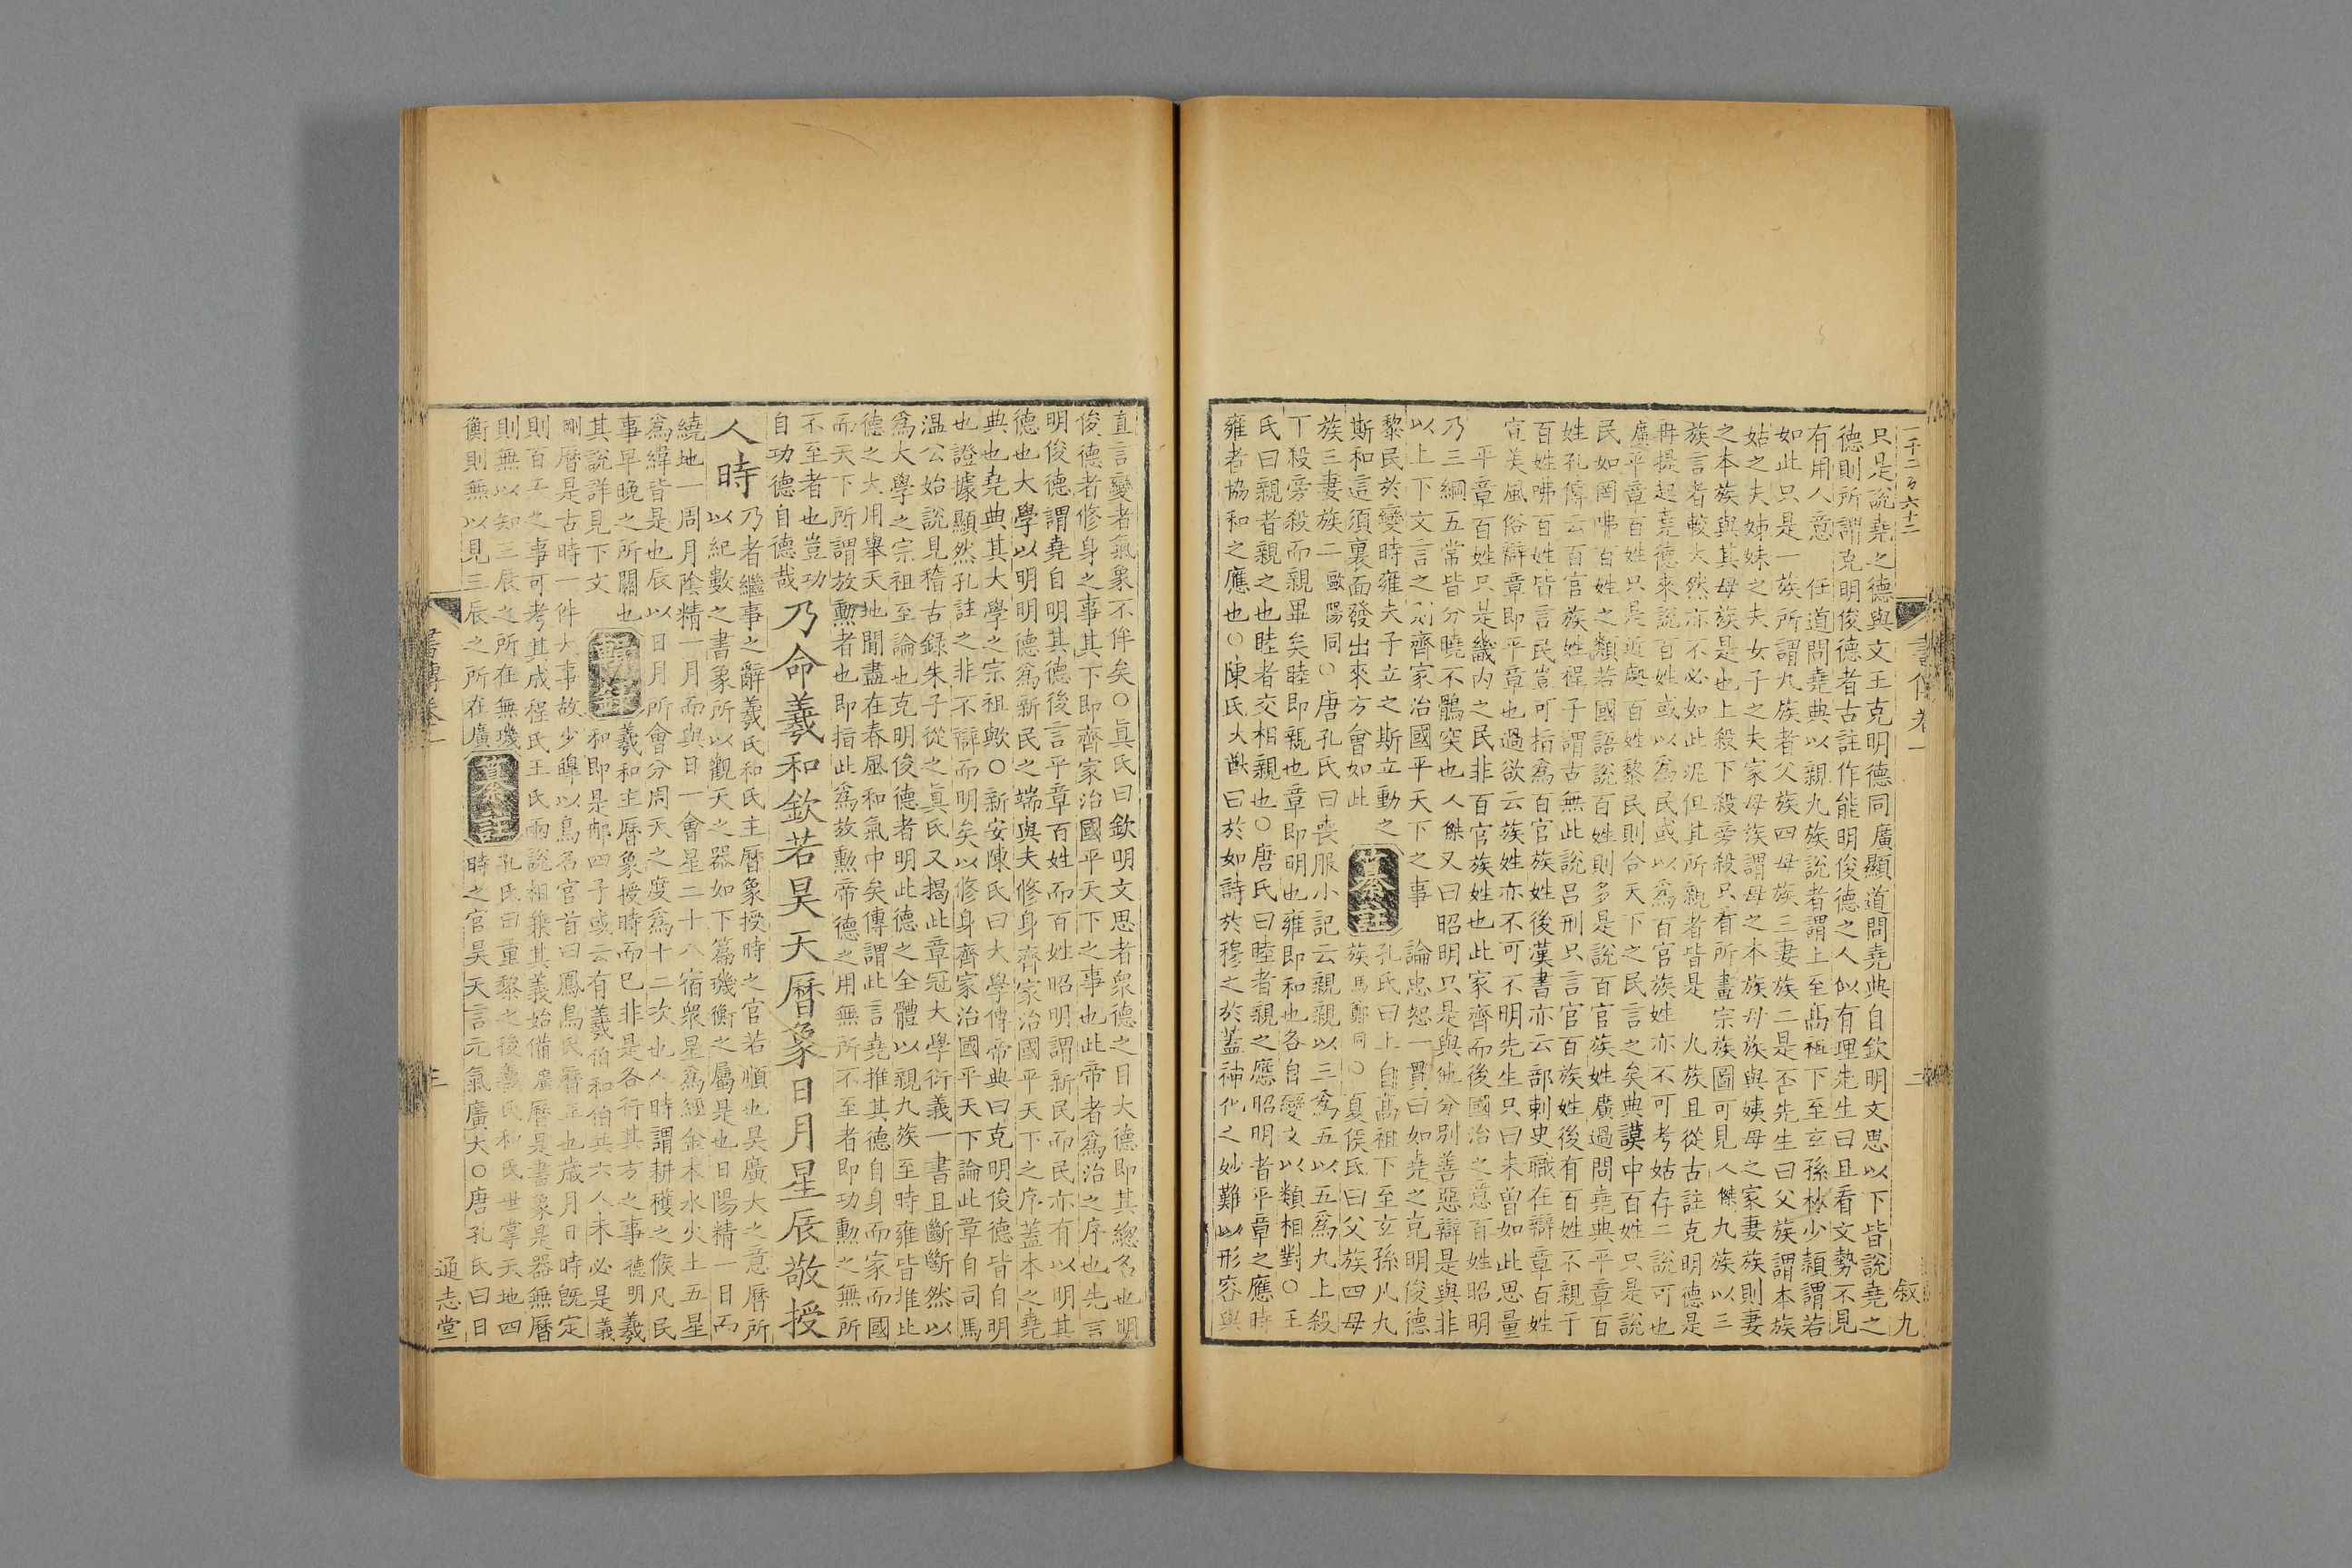 一千二百六十二
書傳卷一
二
叙九
只是說堯之德與文王克明德同廣顯道問堯典自欽明文思以下皆說堯之
德則所謂克明俊德者古註作能明俊德之人似有理先生曰且看文勢不見
有用人意 任道問堯典以親九族說者謂上至高祖下至玄孫林少頴謂若
如此只是一族所謂九族者父族四母族三妻族二是否先生曰父族謂本族
姑之夫姊妹之夫女子之夫家母族謂母之本族母族與姨母之家妻族則妻
之本族與其母族是也上殺下殺旁殺只看所畫宗族圖可見人傑九族以三
族言者較大然亦不必如此泥但其所親者皆是 九族且從古註克明德是
再提起堯德來說百姓或以爲民或以爲百官族姓亦不可考姑存二說可也
廣平章百姓只是近處百姓黎民則合天下之民言之矣典謨中百姓只是說
民如罔咈百姓之類若國語說百姓則多是說百官族姓廣過問堯典平章百
姓孔傳云百官族姓程子謂古無此說呂刑只言官百族姓後有百姓不親于
百姓咈百姓皆言民豈可指爲百官族姓後漢書亦云部刺史職在辯章百姓
宣美風俗辯章即平章也過欲云族姓亦不可不明先生只曰未曾如此思量
平章百姓只是畿内之民非百官族姓也此家齊而後國治之意百姓昭明
乃三綱五常皆分曉不鶻突也人傑又曰昭明只是與他分別善惡辯是與非
以上下文言之則齊家治國平天下之事 論忠恕一貫曰如堯之克明俊德
黎民於變時雍夫子立之斯立動之
斯和這須裏面發出來方會如此
纂註
孔氏曰上自高祖下至玄孫凡九
族馬鄭同○夏侯氏曰父族四母
族三妻族二歐陽同○唐孔氏曰喪服小記云親親以三爲五以五爲九上殺
下殺旁殺而親畢矣睦即親也章即明也雍即和也各自變文以類相對○王
氏曰親者親之也睦者交相親也○唐氏曰睦者親之應昭明者平章之應時
雍者協和之應也○陳氏大猷曰於如詩於穆之於蓋神化之妙難以形容與
直言變者氣象不侔矣○眞氏曰欽明文思者衆德之目大德即其總名也明
俊德者修身之事其下即齊家治國平天下之事也此帝者爲治之序也先言
明俊德謂堯自明其德後言平章百姓而百姓昭明謂新民而民亦有以明其
德也大學以明明德爲新民之端與夫修身齊家治國平天下之序蓋本之堯
典也堯典其大學之宗祖歟○新安陳氏曰大學傳帝典曰克明俊德皆自明
也證據顯然孔註之非不辯而明矣以修身齊家治國平天下論此章自司馬
温公始說見稽古録朱子從之眞氏又揭此章冠大學衍義一書且斷斷然以
爲大學之宗祖至論也克明俊德者明此德之全體以親九族至時雍皆推此
德之大用舉天地間盡在春風和氣中矣傳謂此言堯推其德自身而家而國
而天下所謂放勲者也即指此爲放勲帝德之用無所不至者即功勲之無所
不至者也豈功
自功德自德哉
乃命羲和欽若昊天曆象日月星辰敬授
人時
乃者繼事之辭羲氏和氏主曆象授時之官若順也昊廣大之意曆所
以紀數之書象所以觀天之器如下篇璣衡之屬是也日陽精一日而
繞地一周月陰精一月而與日一會星二十八宿衆星爲經金木水火土五星
爲緯皆是也辰以日月所會分周天之度爲十二次也人時謂耕穫之候凡民
事早晚之所關也
其說詳見下文
輯錄
羲和主曆象授時而已非是各行其方之事德明羲
和即是那四子或云有羲伯和伯共六人未必是義
剛曆是古時一件大事故少皥以鳥名官首曰鳳鳥氏曆正也歲月日時既定
則百工之事可考其成程氏王氏兩說相兼其義始備廣曆是書象是器無曆
則無以知三辰之所在無璣
衡則無以見三辰之所在廣
纂註
孔氏曰重黎之後羲氏和氏世掌天地四
時之官昊天言元氣廣大○唐孔氏曰日
書傳卷一
三
通志堂